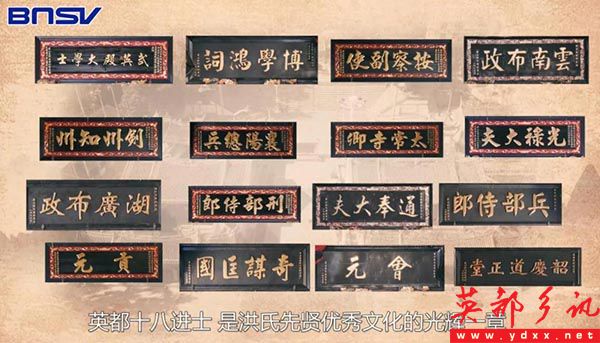 BNSV
武英殿大學士
博學鴻詞
按察副使
雲南布政
劍州知州
襄陽總兵
太常寺卿
光祿大夫
湖廣布政
刑部侍郎
通奉大夫
兵部侍郎
貢元
奇謀匡國
會元
韶慶道正堂
英都十八进士 是洪氏先贤优秀文化的光辉一章
英都乡讯
www.ydxx.net